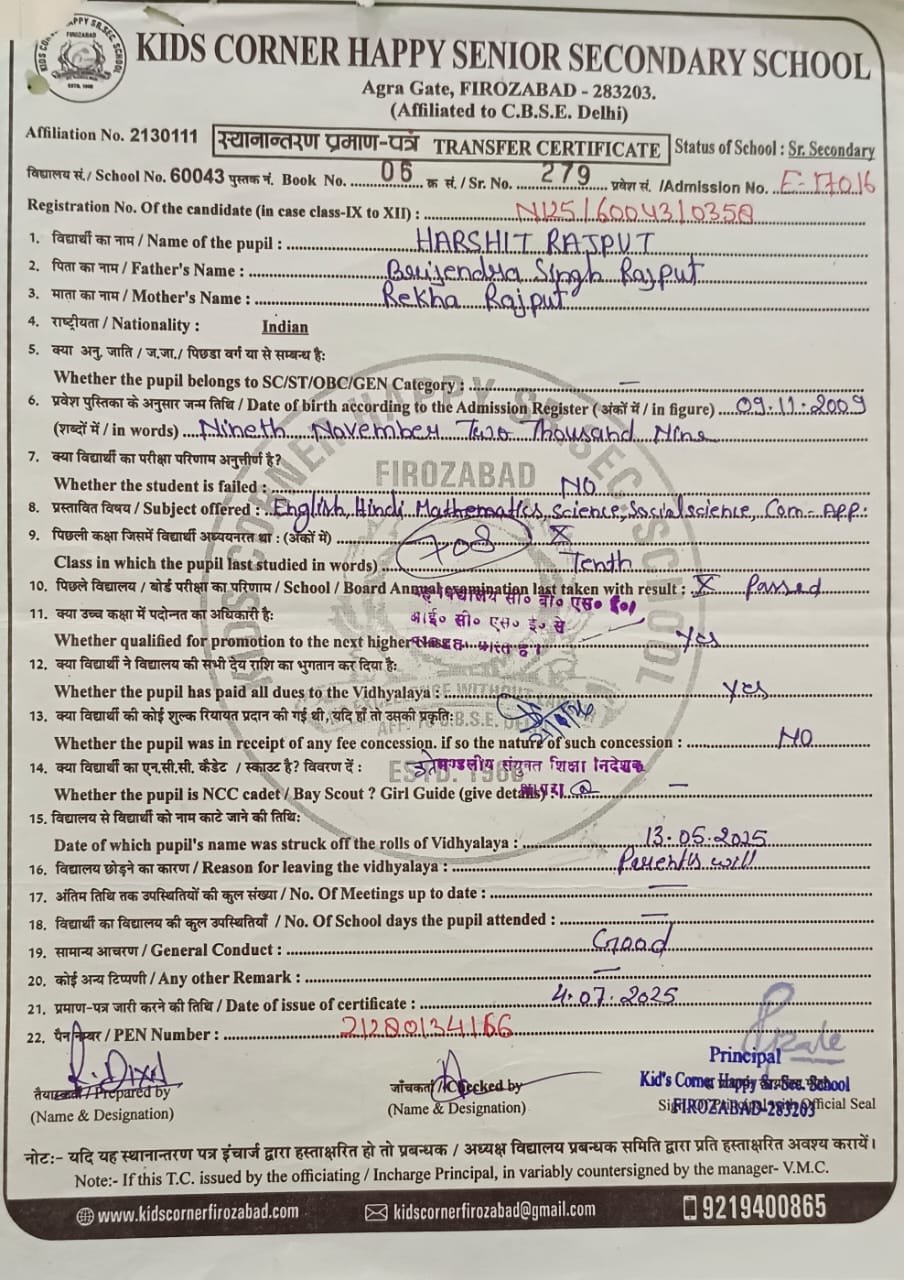 KIDS CORNER HAPPY SENIOR SECONDARY SCHOOL
Agra Gate, FIROZABAD - 283203.
(Affiliated to C.B.S.E. Delhi)
Affiliation No. 2130111 स्थानान्तरण प्रमाण-पत्र TRANSFER CERTIFICATE Status of School : Sr. Secondary
विद्यालय सं./ School No. 60043 पुस्तक नं. Book No. 06 क्र सं./ Sr. No. 279 प्रवेश सं. /Admission No. E-17016
Registration No. Of the candidate (in case class-IX to XII) : N125/60043/0358
1. विद्यार्थी का नाम / Name of the pupil : HARSHIT RAJPUT
2. पिता का नाम / Father's Name : Brijendra Singh Rajput
3. माता का नाम / Mother's Name : Rekha Rajput
4. राष्ट्रीयता / Nationality : Indian
5. क्या अनु. जाति / ज.जा./ पिछडा वर्ग या से सम्बन्ध है:
Whether the pupil belongs to SC/ST/OBC/GEN Category : —
6. प्रवेश पुस्तिका के अनुसार जन्म तिथि / Date of birth according to the Admission Register ( अंकों में / in figure) 09.11.2009
(शब्दों में / in words) Nineth November Two Thousand Nine
7. क्या विद्यार्थी का परीक्षा परिणाम अनुत्तीर्ण है?
Whether the student is failed : NO
8. प्रस्तावित विषय / Subject offered : English, Hindi, Mathematics, Science, Social science, Com. App.
9. पिछली कक्षा जिसमें विद्यार्थी अध्ययनरत था : (अंकों में) X
708
Class in which the pupil last studied in words) Tenth
10. पिछले विद्यालय / बोर्ड परीक्षा का परिणाम / School / Board Annual examination last taken with result : X Passed
विद्यालय सी० बी० एस० ई०/
11. क्या उच्च कक्षा में पदोन्नत का अधिकारी है:
आई० सी० एस० ई० से
Whether qualified for promotion to the next higher Yes
12. क्या विद्यार्थी ने विद्यालय की सभी देय राशि का भुगतान कर दिया है:
Whether the pupil has paid all dues to the Vidhyalaya : Yes
13. क्या विद्यार्थी की कोई शुल्क रियायत प्रदान की गई थी, यदि हाँ तो उसकी प्रकृति:
Whether the pupil was in receipt of any fee concession. if so the nature of such concession : NO
14. क्या विद्यार्थी का एन.सी.सी. कैडेट / स्काउट है? विवरण दें :
मण्डलीय संयुक्त शिक्षा निदेशक
Whether the pupil is NCC cadet / Bay Scout ? Girl Guide (give details) : —
15. विद्यालय से विद्यार्थी को नाम काटे जाने की तिथि:
Date of which pupil's name was struck off the rolls of Vidhyalaya : 13.05.2025
16. विद्यालय छोड़ने का कारण / Reason for leaving the vidhyalaya : Parent's will
17. अंतिम तिथि तक उपस्थितियों की कुल संख्या / No. Of Meetings up to date : —
18. विद्यार्थी का विद्यालय की कुल उपस्थितियाँ / No. Of School days the pupil attended : —
19. सामान्य आचरण / General Conduct : Good
20. कोई अन्य टिप्पणी / Any other Remark : —
21. प्रमाण-पत्र जारी करने की तिथि / Date of issue of certificate : 4.07.2025
22. पैन नम्बर / PEN Number : 21280134166
R. Dixit
तैयारकर्ता / Prepared by
(Name & Designation)
जाँचकर्ता / Checked by
(Name & Designation)
Principal
Kid's Corner Happy Sr. Sec. School
FIROZABAD-283203
Official Seal
नोट:- यदि यह स्थानान्तरण पत्र इंचार्ज द्वारा हस्ताक्षरित हो तो प्रबन्धक / अध्यक्ष विद्यालय प्रबन्धक समिति द्वारा प्रति हस्ताक्षरित अवश्य करायें।
Note:- If this T.C. issued by the officiating / Incharge Principal, in variably countersigned by the manager- V.M.C.
www.kidscornerfirozabad.com kidscornerfirozabad@gmail.com 9219400865